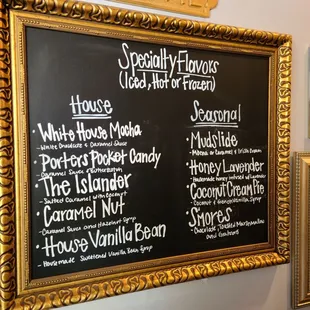 Specialty Flavors
(Iced, Hot or Frozen)
House
White House Mocha
White Chocolate & Caramel Sauce
Porters Pocket Candy
Caramel Sauce & Butterfinger
The Islander
Salted Caramel with Coconut
Caramel Nut
Caramel Sauce and Hazelnut Syrup
House Vanilla Bean
Homemade Sweetened Vanilla Bean Syrup
Seasonal
Mudslide
Mocha & Caramel & Irish Cream
Honey Lavender
Homemade honey infused w/ lavender
Coconut Cream Pie
Coconut & french Vanilla Syrup
S'mores
Chocolate, Toasted Marshmallow
and Graham